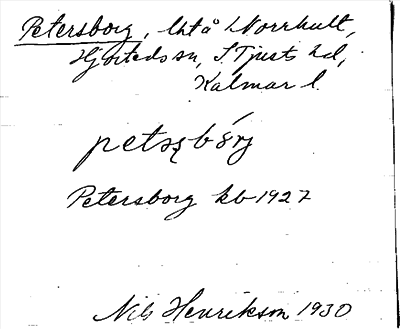 Petersborg, utå Norrhult,
Hjorteds sn, S Tjusts hd,
Kalmar l.
Petersborg kb 1927
Nils Henrikson 1930